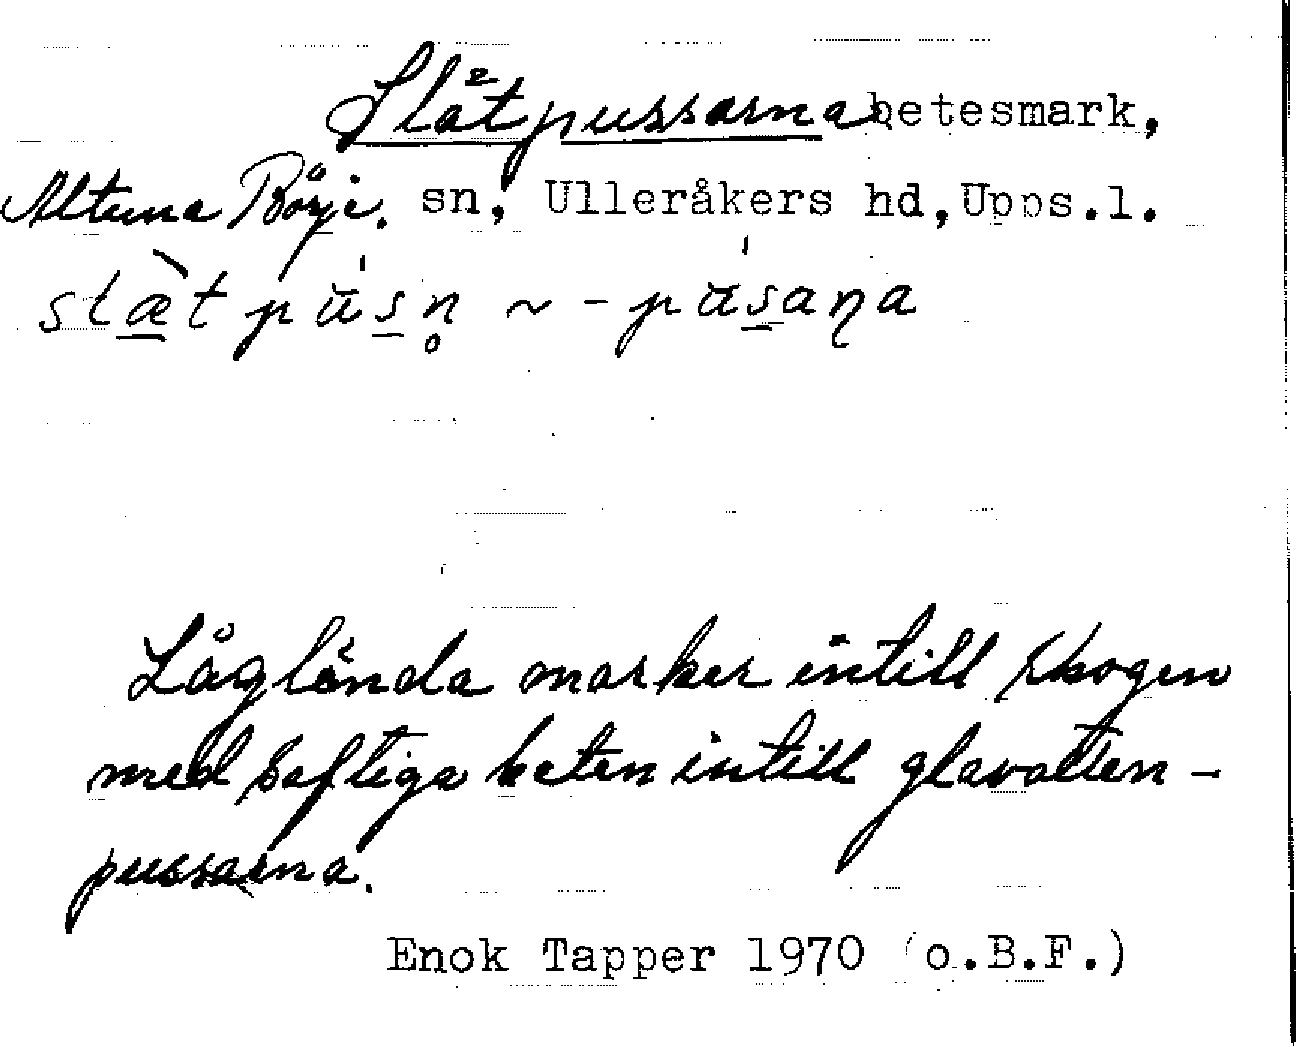 Slåtpussarna betesmark,
Altuna Börje. sn, Ulleråkers hd, Upps.l.
slæ̀t pus̲n̥ ~ - pus̲aɳa
Låglända marker intill skogen
med saftiga beten intill glavatten-
pussarna.
Enok Tapper 1970 (o.B.F.)